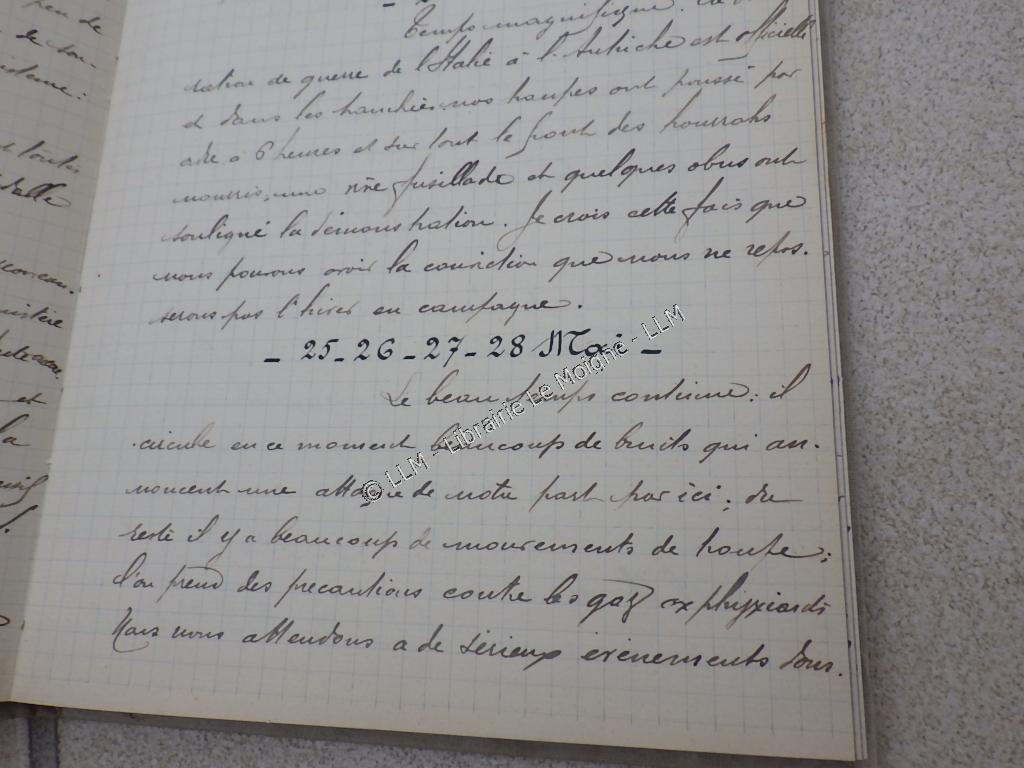 peu de
Temps magnifique. La
ration de guerre de l'Italie à l'Autriche est officielle
et dans les tranchées nos troupes ont poussé par
ordre à 6 heures et sur tout le front des hourrahs
nourris, une vive fusillade et quelques obus ont
souligné la démonstration. Je crois cette fois que
nous pouvons avoir la conviction que nous ne repas-
serons pas l'hiver en campagne.
- 25 - 26 - 27 - 28 Mai -
Le beau temps continue : il
circule en ce moment beaucoup de bruits qui an-
noncent une attaque de notre part par ici ; du
reste il y a beaucoup de mouvements de troupe ;
l'on prend des precautions contre les gaz asphyxiants
Nous nous attendons a de sérieux évènements dans
et
la
© LLM - Librairie Le Moigne - LLM